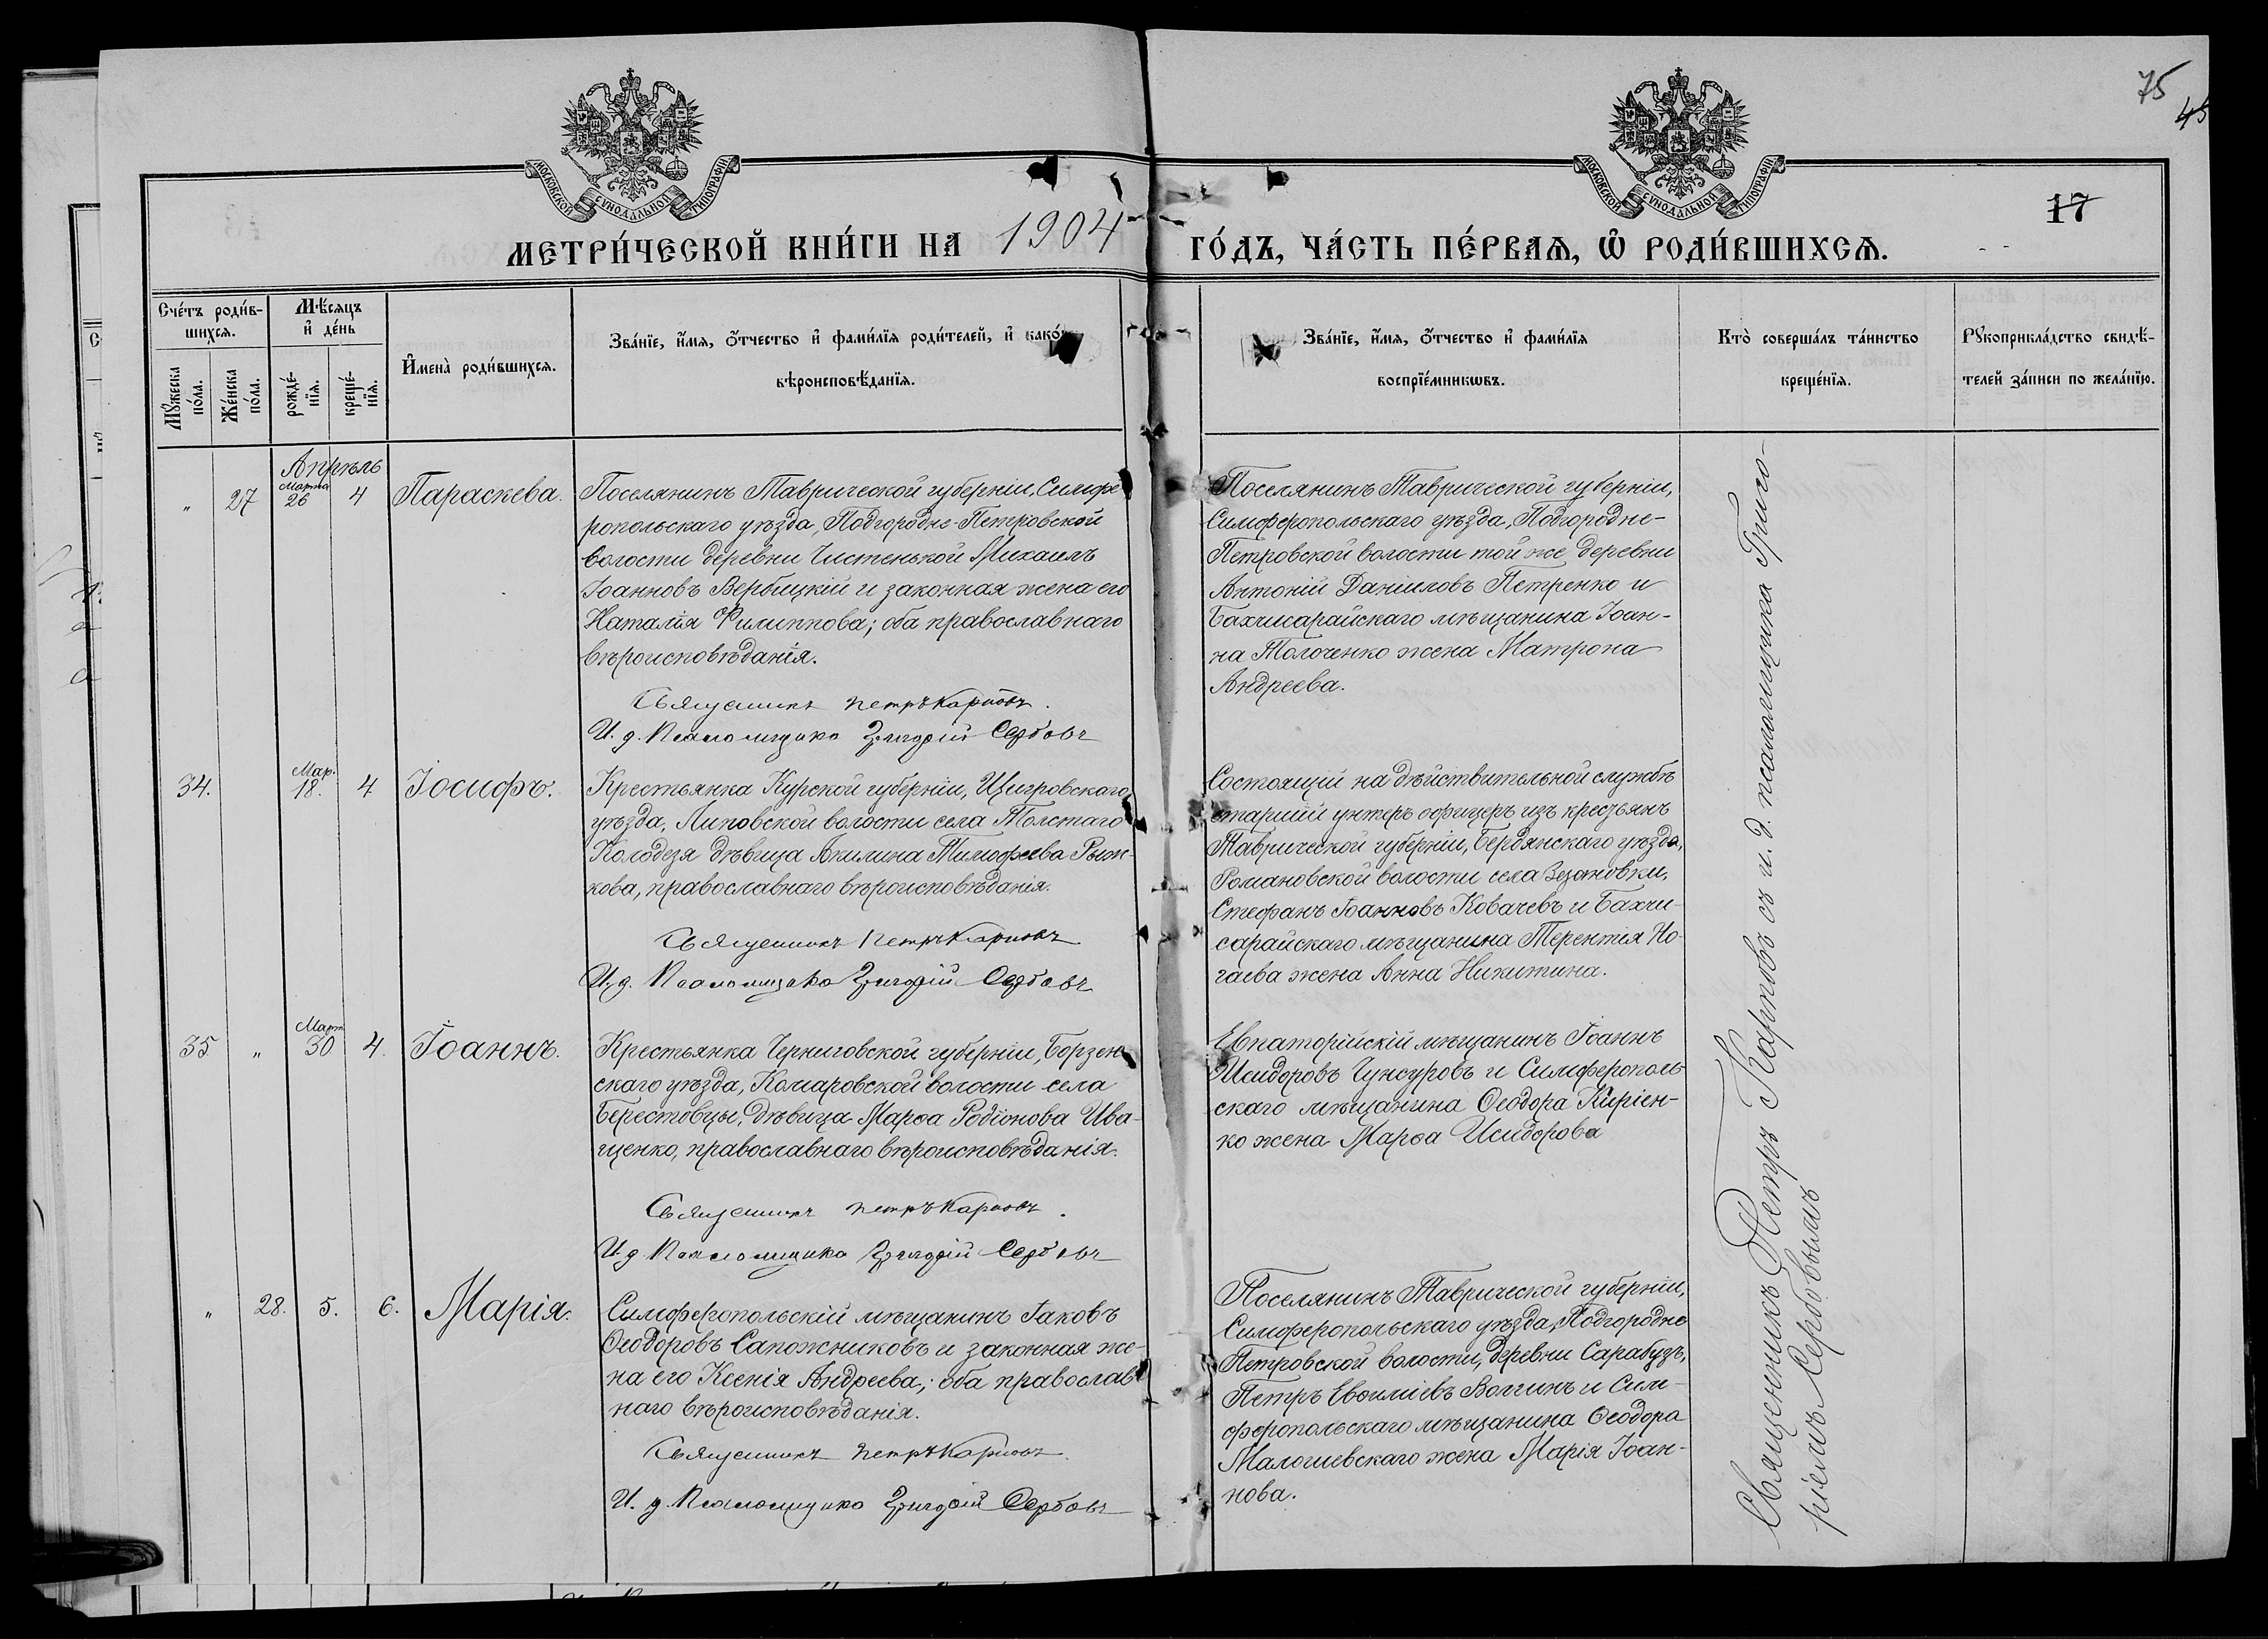 75
45
17
МОСКОВСКОЙ СѴНОДАЛЬНОЙ ТИПОГРАФІИ
МОСКОВСКОЙ СѴНОДАЛЬНОЙ ТИПОГРАФІИ
МЕТРИ́ЧЕСКОЙ КНИ́ГИ НА 1904 ГО́ДЪ, ЧА́СТЬ ПЕ́РВАѦ, Ѡ҆ РОДИ́ВШИХСѦ.
Сче́тъ роди́в-
шихсѧ.
Мꙋ́жеска
по́ла.
Же́нска
по́ла.
Мѣ́сѧцъ
и҆ де́нь
рожде́-
нїѧ.
креще́-
нїѧ.
И҆мена̀ роди́вшихсѧ.
Зва́нїе, и҆́мѧ, ѻ҆́тчество и҆ фами́лїѧ роди́телей, и҆ како́
вѣроисповѣ́данїѧ.
Зва́нїе, и҆́мѧ, ѻ҆́тчество и҆ фами́лїѧ
воспрїе́мникѡвъ.
Кто̀ соверша́лъ та́инство
креще́нїѧ.
Рꙋкоприкла́дство свидѣ́-
телей за́писи по жела́нїю.
Апрѣль
" 27 Марта 26 4 Параскева.
Поселянинъ Таврической губерніи, Симфе
ропольскаго уѣзда, Подгородне-Петровской
волости деревни Чистенькой Михаилъ
Іоанновъ Вербицкій и законная жена его
Наталія Филиппова; оба православнаго
вѣроисповѣданія.
Священникъ Петръ Карповъ.
И. д. Псаломщика Григорій Сербовъ
Поселянинъ Таврической губерніи,
Симферопольскаго уѣзда, Подгородне-
Петровской волости той же деревни
Антоній Даніиловъ Петренко и
Бахчисарайскаго мѣщанина Іоан-
на Толоченко жена Матрона
Андреева.
34. Мар. 18. 4 Іосифъ.
Крестьянка Курской губерніи, Щигровскаго
уѣзда, Липовской волости села Толстаго
Колодезя дѣвица Акилина Тимофеева Рыж-
кова, православнаго вѣроисповѣданія.
Священникъ Петръ Карповъ
И. д. Псаломщика Григорій Сербовъ
Состоящій на дѣйствительной службѣ
старшій унтеръ офицеръ изъ крестьянъ
Таврической губерніи, Бердянскаго уѣзда,
Романовской волости села
Стефанъ Іоанновъ Ковачевъ и Бахчи-
сарайскаго мѣщанина Терентія Но-
гаева жена Анна Никитина.
35 " Март 30 4. Іоаннъ.
Крестьянка Черниговской губерніи, Борзен-
скаго уѣзда, Комаровской волости села
Берестовцы, дѣвица Марѳа Родіонова Ива-
щенко, православнаго вѣроисповѣданія.
Священникъ Петръ Карповъ.
И. д. Псаломщика Григорій Сербовъ
Евпаторійскій мѣщанинъ Іоаннъ
Исидоровъ Чунсуровъ и Симферополь
скаго мѣщанина Ѳеодора Киріен-
ко жена Марѳа Исидорова
" 28. 5. 6. Марія.
Симферопольскій мѣщанинъ Іаковъ
Ѳеодоровъ Сапожниковъ и законная же-
на его Ксенія Андреева; оба православ
наго вѣроисповѣданія.
Священникъ Петръ Карповъ.
И. д. Псаломщика Григорій Сербовъ
Поселянинъ Таврической губерніи,
Симферопольскаго уѣзда, Подгородне
Петровской волости, деревни Сарабузъ,
Петръ Евѳиміевъ и Сим-
феропольскаго мѣщанина Ѳеодора
Малошевскаго жена Марія Іоан-
нова.
Священникъ Петръ Карповъ съ и. д. псаломщика Григо-
ріемъ Сербовымъ